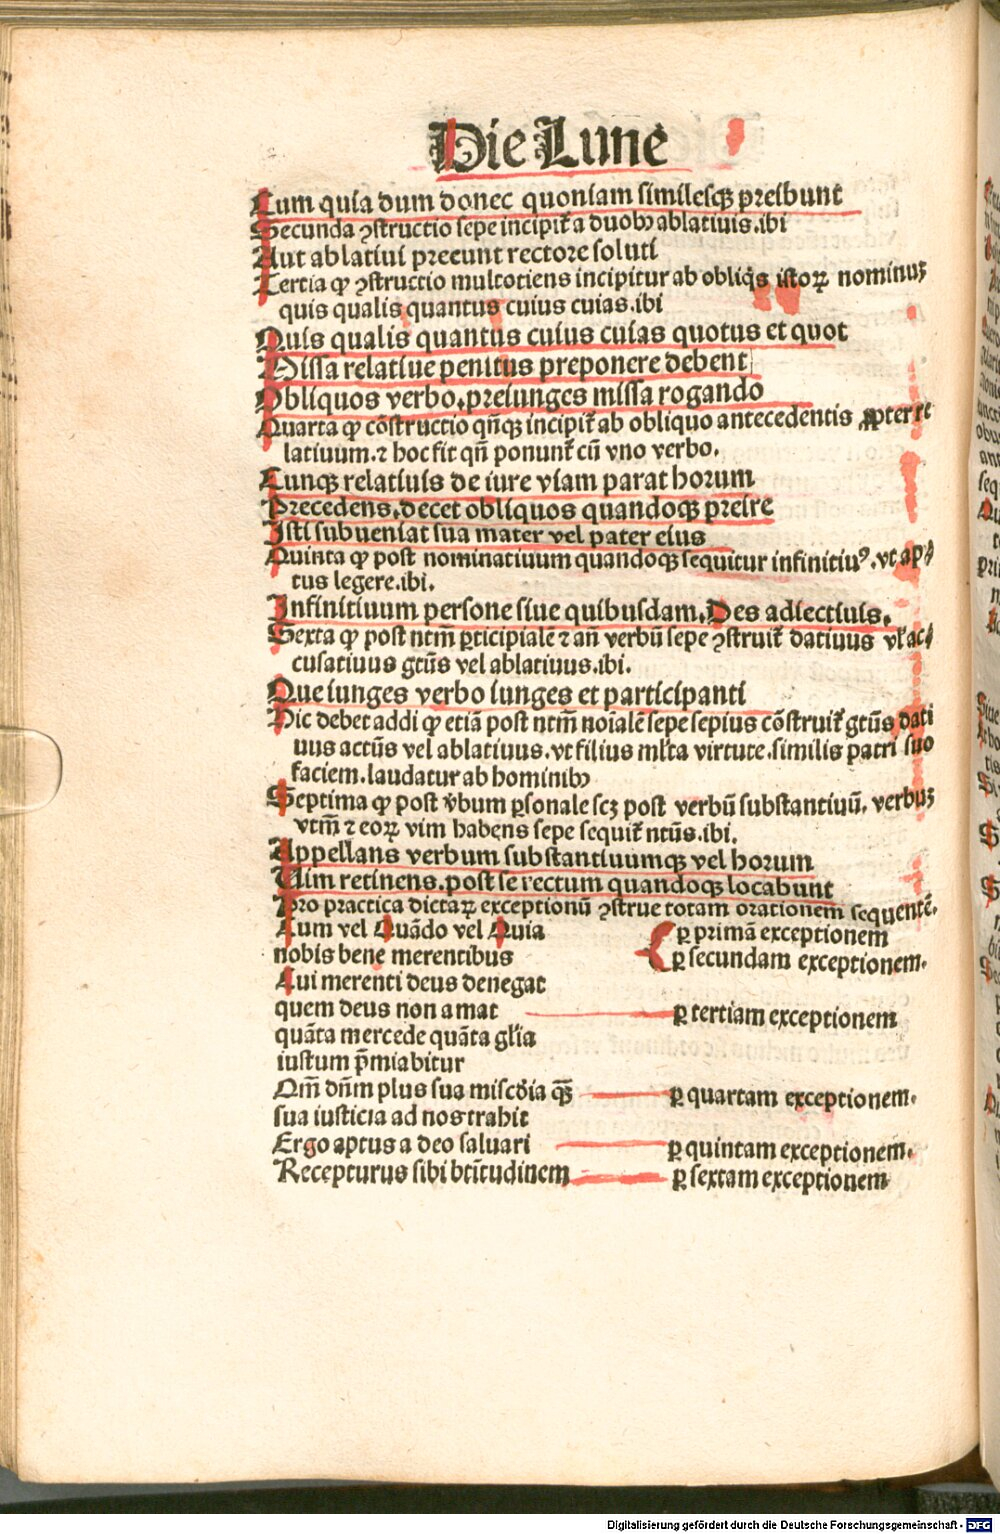 Die Lune
Cum quia dum donec quoniam similesqꝫ preibunt
Secunda ꝯstructio sepe incipit᷑ a duobꝰ ablatiuis.ibi
Aut ablatiui preeunt rectore soluti
Tertia ꝙ ꝯstructio multotiens incipitur ab obliq̇s istoꝝ nominuꝫ
quis qualis quantus cuius cuias.ibi
Quis qualis quantus cuius cuias quotus et quot
Missa relatiue penitus preponere debent
Obliquos verbo.preiunges missa rogando
Quarta ꝙ cōstructio qn̄qꝫ incipit᷑ ab obliquo antecedentis ꝓpter re
latiuum.⁊ hoc fit qn̄ ponunt᷑ cū vno verbo.
Cunqꝫ relatiuis de iure viam parat horum
Precedens.decet obliquos quandoqꝫ preire
Isti subueniat sua mater vel pater eius
Quinta ꝙ post nominatiuum quandoqꝫ sequitur infinitiuꝰ.vt ap⸗
tus legere.ibi.
Infinitiuum persone siue quibusdam.Des adiectiuis.
Sexta ꝙ post ntm̄ ꝑticipialē ⁊ an̄ verbū sepe ꝯstruit᷑ datiuus vl᷑ ac⸗
cusatiuus gtūs vel ablatiuus.ibi.
Que iunges verbo iunges et participanti
Hic debet addi ꝙ etiā post ntm̄ noīalē sepe sepius cōstruit᷑ gtūs dati
uus actūs vel ablatiuus.vt filius ml᷑ta virtute.similis patri suo
faciem.laudatur ab hominibꝰ
Septima ꝙ post v̄bum ꝑsonale scꝫ post verbū substantiuū. verbuꝫ
vtm̄ ⁊ eoꝝ vim habens sepe sequit᷑ ntūs.ibi.
Appellans verbum substantiuumqꝫ vel horum
Uim retinens.post se rectum quandoqꝫ locabunt
Pro practica dictaꝝ exceptionū ꝯstrue totam orationem sequentē.
Cum vel Quādo vel Quia ꝑ primā exceptionem
nobis bene merentibus ꝑ secundam exceptionem.
Cui merenti deus denegat
quem deus non amat ꝑ tertiam exceptionem
quāta mercede quāta gl᷑ia
iustum p̄miabitur
Qm̄ dn̄m plus sua miscd̄ia qꝫ̄ ꝑ quartam exceptionem.
sua iusticia ad nos trahit
Ergo aptus a deo saluari ꝑ quintam exceptionem.
Recepturus sibi btītudinem ꝑ sextam exceptionem
Digitalisierung gefördert durch die Deutsche Forschungsgemeinschaft - DFG